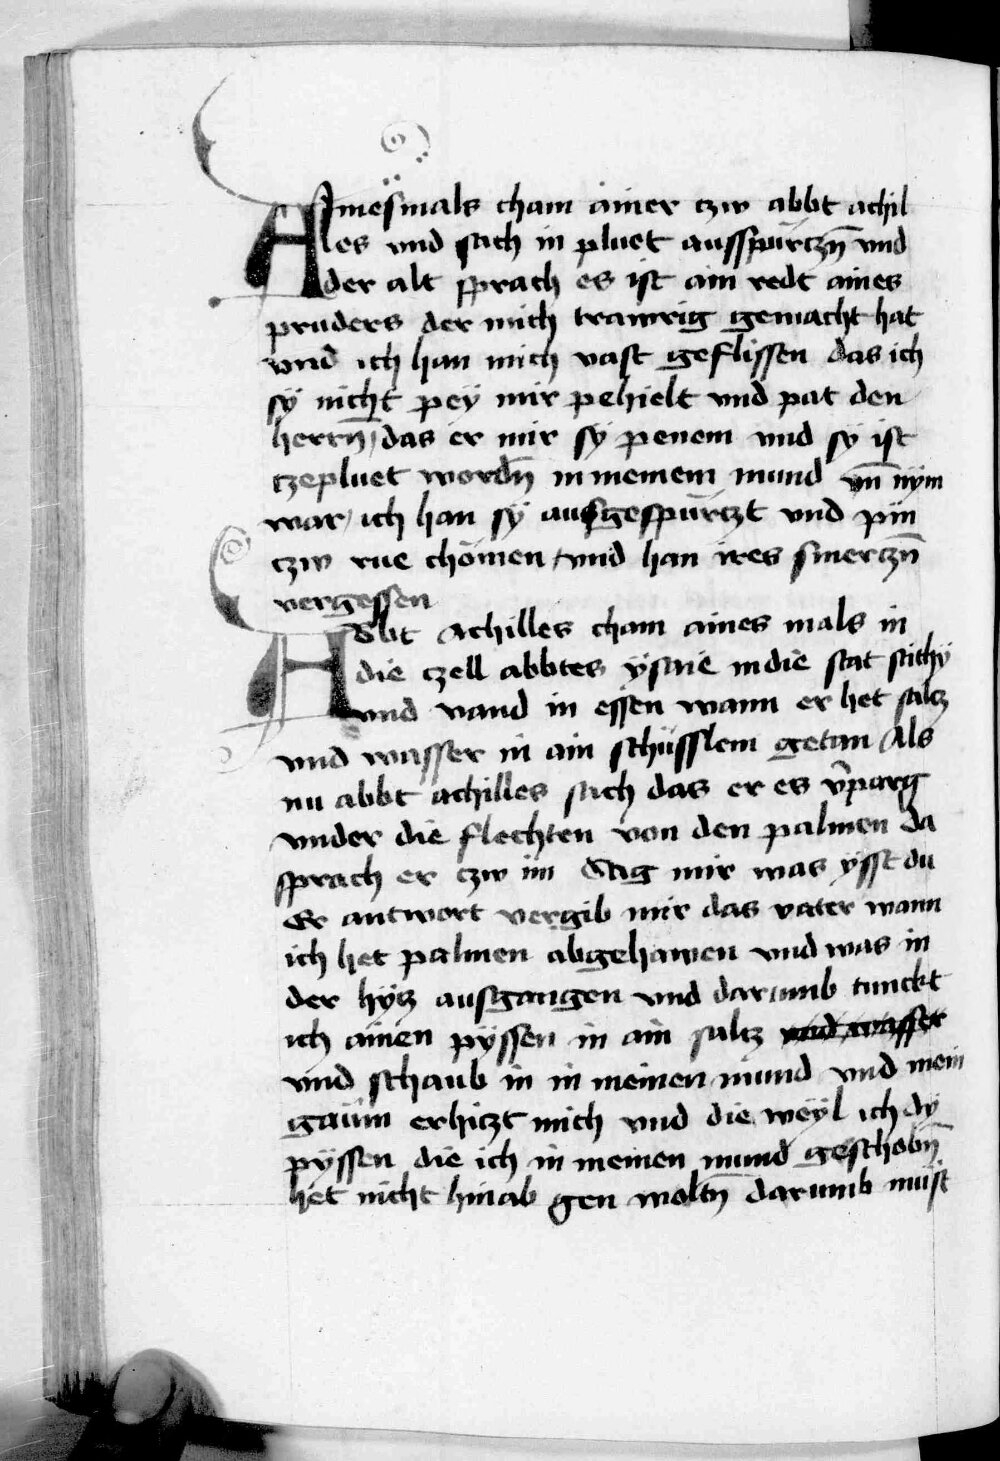 AInesmals cham ainer czw abbt achil
les vnd sach in pluet ausspürczn̄ vnd
der alt sprach es ist ain redt aines
pruders der mich trawrig gemacht hat
vnd ich han mich vast geflissen das ich
sy nicht pey mir pehielt vnd pat den
herrn̄ das er mir sÿ penem vnd sÿ ist
czepluet wordn̄ in meinem mund vn̄ nym
war / ich han sÿ ausgespürczt vnd pin
czw rue chömen / vnd han ires smerczn̄
vergessen
Abt Achilles cham aines mals in
die czell abbtes ÿsaie in die stat scithÿ
vnd vand in essen wann er het salcz
vnd wasser in ain schüsslein getan Als
nu abbt achilles sach das er es v̄parg
vnder die flechten von den palmen da
sprach er czw im Sag mir was ÿsst du
Er antwort vergib mir das vater wann
ich het palmen abgehawen vnd was in
der hÿcz ausgangen vnd darumb tunckt
ich ainen pÿssen in ain salcz vnd wasser
vnd schaub in in meinen mund vnd mein
gaüm erhiczt mich vnd die weÿl ich dÿ
pÿssen die ich in meinen mund geschobn̄
het nicht hinab gen woltn̄ darumb müst